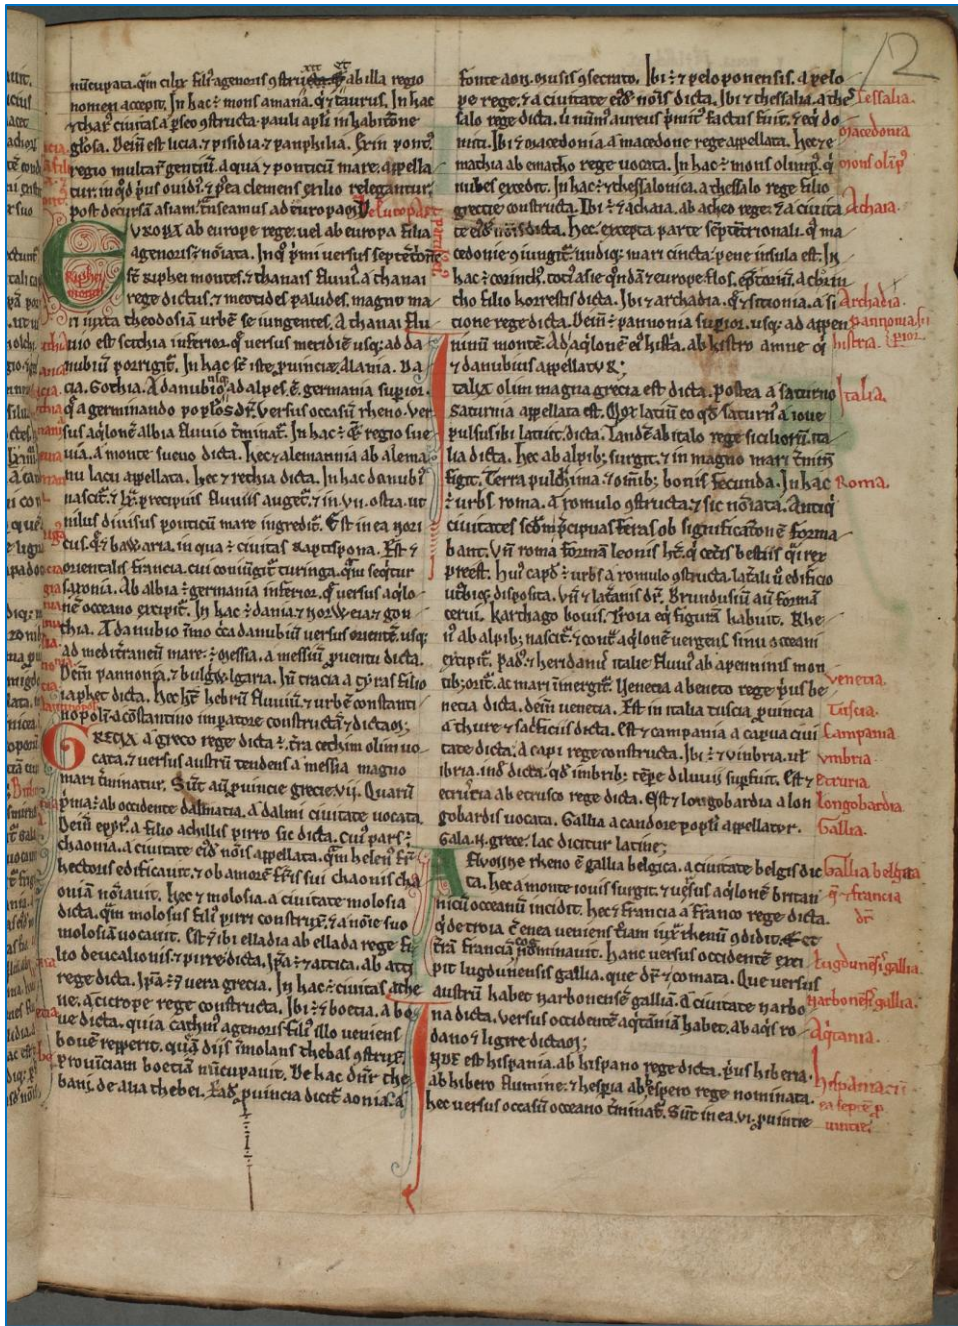 nūcupata. qm̄ cilix fili᷒ agenoris 9strux̄ ab illa regio
nomen accepit. In hac ÷ mons amana. q̄ ⁊ taurus. In hac
⁊ thars᷒ ciuitas a pseo 9structa. pauli apl̄i inhabitōne
gl̄osa. Deīn est licia. ⁊ pisidia. ⁊ panphilia.
regio multar̄ gentiū. a qua ⁊ ponticū mare appella
tur. in q̄d pus ouidi᷒. ⁊ p̄ea clemens exilio relegantur.
post decursā asiam. tn̄seamus ad europā
EUROPA ab europe rege. uel ab europa filia
agenoris ÷ noīata. In q̄ p̄mi uersus septētōnē
st̄ riphei montes. ⁊ thanais fluui᷒. a thanai
rege dictus. ⁊ meotides paludes. magno ma
ri iuxta theodosiā urbē se iungentes. A thanai flu
uio est scithia inferior. q̄ uersus meridiē usq; ad da
nubiū porrigit̄. In hac st̄ iste puincie. Alania. Da
cia. Gothia. A danubio usq; ad alpes ē germania supior.
q̄ a germinando pop̄los dr̄. uersus occasū rheno. uer
sus aq̄lonē albia fluuio t̄minat̄. In hac ÷ q̄ regio sue
uia. a monte sueuo dicta. hec ⁊ alemannia ab alema
nu lacu appellata. hec ⁊ rechia dicta. In hac danubi᷒
nascit̄. ⁊ lx. precipuis fluuiis auget̄. ⁊ in .vii. ostia. ut
nilus diuisus ponticū mare ingredit̄. Est in ea nori
cus. q̄ ⁊ bawaria. in qua ÷ ciuitas ratispona. Est ⁊
orientalis francia. cui coniūgit̄ turinga. q̄m seqtur
saxonia. Ab albia ÷ germania inferior. q̄ uersus aqlo
nē occeano excipit̄. In hac ÷ dania ⁊ norweia ⁊ gou
thia. A danubio īmo c̄ca danubiū uersus orientē. usq;
ad mediterraneū mare ÷ messia. a messiū puentu dicta.
Deīn pannonia. ⁊ bulgaria. Hī tracia a tyras filio
iaphet dicta. hec ht̄ hebrū fluuiū. ⁊ urbē constanti
nopolī. a cōstantino imperatore constructā ⁊ dictā;
GRECIA a greco rege dicta ÷. t̄ra cechim olim uo
cata. ⁊ uersus austrū tendens a messia magno
mari t̄minatur. Sūt aū puincie grecie .vii. Quarū
p̄ma ÷ ab occidente dalmatia. a dalmi ciuitate uocata.
Deīn epyr᷒. a filio achillis pirro sic dicta. cui᷒ pars ÷
chaonia. a ciuitate ei᷒d nōis appellata. quam helen᷒ fr̄
hectoris edificauit. ⁊ ob amorē fr̄is sui chaonis cha
oniā nōiauit. hec ⁊ molosia. a ciuitate molosia
dicta. qm̄ molosus fili᷒ pirri construxit. ⁊ a nōie suo
molosiā uocauit. Est ⁊ ibi elladia ab ellada rege fi
lio deucalionis ⁊ pirre dicta. Ip̄a ÷ ⁊ attica. ab atti
rege dicta. Ip̄a ÷ ⁊ uera grecia. In hac ÷ ciuitas athe
ne. a cicrope rege constructa. Ibi ÷ ⁊ boetia. a bo
ue dicta. quia cathm᷒ agenoris fili᷒ illo ueniens
bouē repperit. quā diis īmolans thebas 9strux̄.
prouinciam boetiā nūcupauit. De hac dn̄r the
bani. de alia thebei. Ead puincia dicit̄ aonia. a
fonte aon. musis 9secrato. Ibi ÷ ⁊ peloponensis. a pelo
pe rege. ⁊ a ciuitate ei᷒d nōis dicta. Ibi ⁊ thessalia. a the
salo rege dicta. ū num᷒ aureus p̄mit᷒ factus fuit. ⁊ eq̄ do
miti. Ibi ⁊ macedonia. a macedone rege appellata. hec ⁊ e
mathia ab emacho rege uocata. In hac ÷ mons olimp᷒. q̄
nubes excedit. In hac ÷ ⁊ thessalonica. a thessalo rege filio
grecie constructa. Ibi ÷ ⁊ achaia. ab acheo rege. ⁊ a ciuita
te ei᷒d nōis dicta. hec. excepta parte septētrionali. q̄ ma
cedonie 9iungit̄. undiq; mari cincta. pene insula est. In
hac ÷ corinth᷒. toti᷒ asie q̄ndā ⁊ europe flos. a corin
tho filio horrestis dicta. Ibi ⁊ archadia. q̄ ⁊ sitionia. a si
cione rege dicta. Deīn ÷ pannonia supior. usq; ad appen
ninū montē. Ad aqlonē ei᷒ histā. ab histro amne q̄
⁊ danubius appellatur;
ITALIA olim magna grecia est dicta. postea a saturno
saturnia appellata est. Mox latiū eo qd̄ saturn᷒ a ioue
pulsus ibi latuit. dicta. Tandē ab italo rege siciliorū. ita
lia dicta. hec ab alpib; surgit. ⁊ in magno mari t̄min
figit. Terra pulch̄ima ⁊ omīb; bonis fecunda. In hac
÷ urbs roma. a romulo 9structa. ⁊ sic nōiata. Antiq
ciuitates scdm̄ p̄cipuas feras ob significationē forma
bant. Vn̄ roma formā leonis ht̄. q̄ cet̄is bestiis q̄si rex
preest. Hui᷒ capd ÷ urbs a romulo 9structa. lat̄ali ū edificio
ut̄biq; disposita. vn̄ ⁊ lat̄anis dr̄. Brundusiū aū formā
cerui. Karthago bouis. Troia eq̄ figurā habuit. Rhe
n᷒ ab alpib; nascit̄. ⁊ cont̄ aqlonē uergens sinu occeani
excipit̄. Pad᷒. ⁊ heridan᷒ italie fluui᷒ ab apenninis mon
tib; orit̄. ac mari īmergit̄. Venecia a beneto rege pus be
necia dicta. deīm uenecia. Est in italia tuscia puincia
a thure ⁊ sacrificiis dicta. Est ⁊ campania a capua ciui
tate dicta. a capi rege constructa. Ibi ÷ ⁊ vmbria. ul̄
ibria. ind dicta. qd̄ imbrib; tēpe diluuii supfuit. Est ⁊
etruria ab etrusco rege dicta. Est ⁊ longobardia a lon
gobardis uocata. Gallia a candore popl̄i appellatur.
Gala .n. grece. lac dicitur latine;
A fluuine rheno ē gallia belgica. a ciuitate belgis dic
ta. hec a monte iouis surgit. ⁊ uersus aqlonē britan
nicū occeanū incidit. hec ⁊ francia a franco rege dicta.
q̄ de troia c̄ enea ueniens t̄iam iux̄ rhenū 9didit. Et
t̄rā franciā nominauit. Hanc uersus occidentē exci
pit lugdunensis gallia. que dr̄ ⁊ comata. Que uersus
austrū habet narbonensē galliā. a ciuitate narbo
na dicta. uersus occidentē aq̄taniā habet. ab aq̄s ro
dano ⁊ ligire dictam;
INDE est hispania. ab hispano rege dicta. pus hiberia.
ab hibero flumine. ⁊ hespia ab espero rege nominata.
hec uersus occasū oceano t̄minat̄. Sūt in ea .vi. puincie
12
Tessalia.
Macedonia
mons olip᷒
Achaia.
Archadia.
pannonia supior.
histria.
Italia.
Roma.
venetia.
Tuscia.
Campania
vmbria.
etruria.
longobardia.
Gallia.
Gallia belgica
q̄ ⁊ francia
dr̄
Lugdunēsis gallia.
Narbonēsis gallia.
Aq̄tania.
hispania
ea septē p
uincie.
Riphei
montes